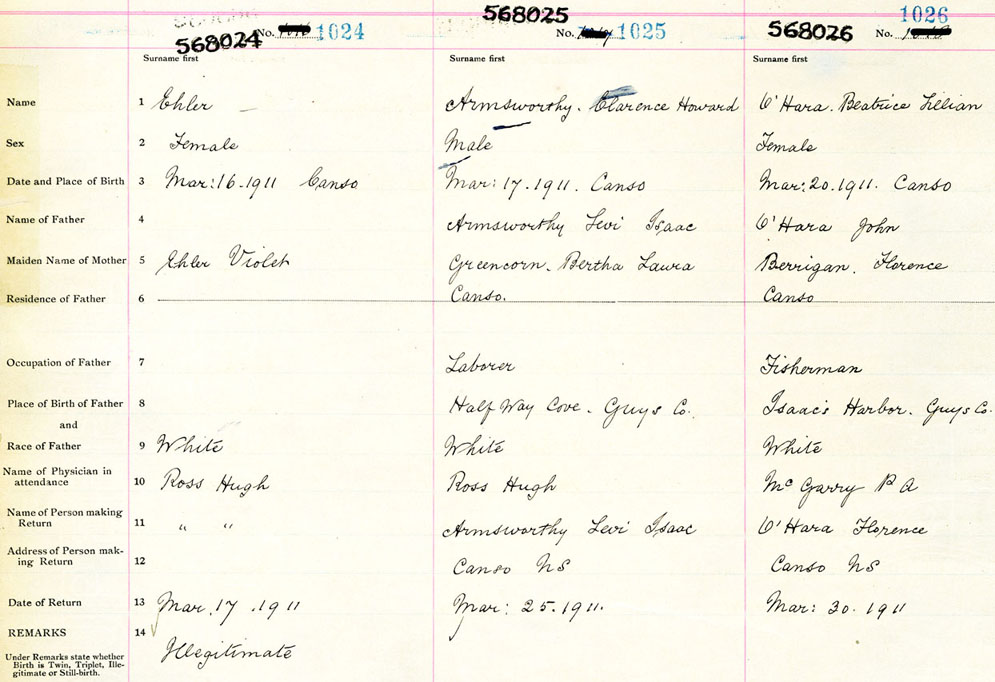 568024 No. 1024 568025 No. 1025 568026 No. 1026
Surname first Surname first Surname first
Name 1 Ehler — Armsworthy. Clarence Howard O'Hara. Beatrice Lillian
Sex 2 Female Male Female
Date and Place of Birth 3 Mar: 16. 1911 Canso Mar: 17. 1911. Canso Mar: 20. 1911. Canso
Name of Father 4 Armsworthy Levi Isaac O'Hara John
Maiden Name of Mother 5 Ehler Violet Greencorn. Bertha Laura Berrigan. Florence
Residence of Father 6 Canso. Canso
Occupation of Father 7 Laborer Fisherman
Place of Birth of Father 8 Half Way Cove. Guys Co. Isaac's Harbor. Guys Co.
and
Race of Father 9 White White White
Name of Physician in
attendance 10 Ross Hugh Ross Hugh Mc Garry P A
Name of Person making
Return 11 " " Armsworthy Levi Isaac O'Hara Florence
Address of Person mak-
ing Return 12 Canso NS Canso NS
Date of Return 13 Mar. 17. 1911 Mar: 25. 1911. Mar: 30. 1911
REMARKS 14
Under Remarks state whether
Birth is Twin, Triplet, Ille-
gitimate or Still-birth.
Illegitimate